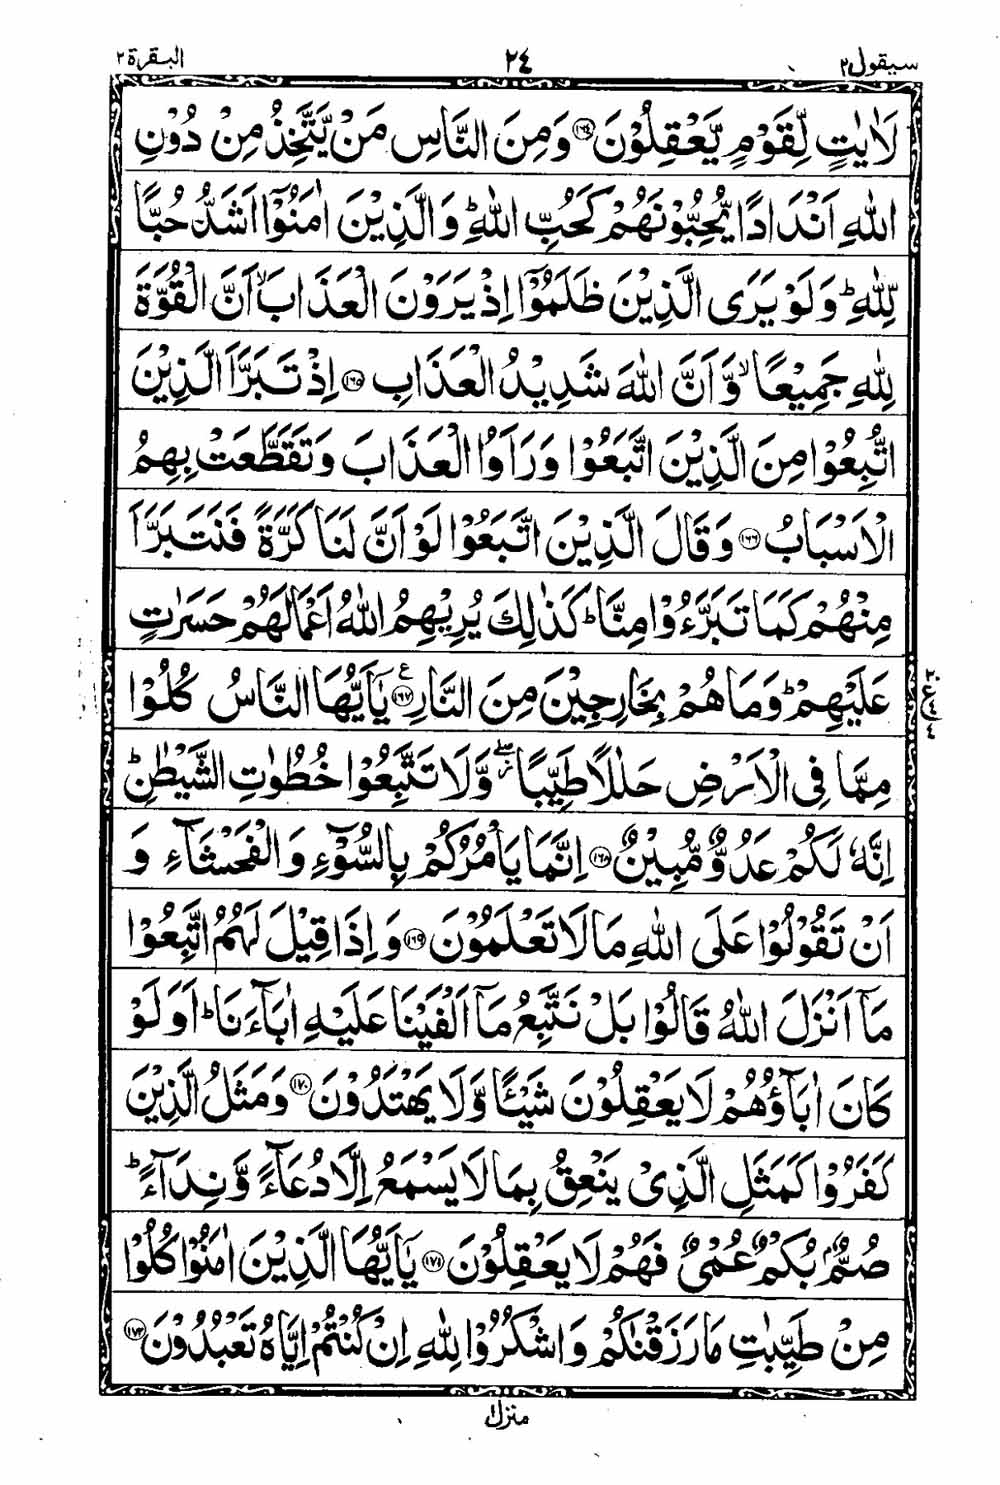 سيقول ٢
٢٤
البقرة ٢
لَاٰيٰتٍ لِّقَوْمٍ يَّعْقِلُوْنَ ﴿١٦٤﴾ وَمِنَ النَّاسِ مَنْ يَّتَّخِذُ مِنْ دُوْنِ
اللّٰهِ اَنْدَادًا يُّحِبُّوْنَهُمْ كَحُبِّ اللّٰهِ ؕ وَالَّذِيْنَ اٰمَنُوْۤا اَشَدُّ حُبًّا
لِّلّٰهِ ؕ وَلَوْ يَرَى الَّذِيْنَ ظَلَمُوْۤا اِذْ يَرَوْنَ الْعَذَابَ ۙ اَنَّ الْقُوَّةَ
لِلّٰهِ جَمِيْعًا ۙ وَّاَنَّ اللّٰهَ شَدِيْدُ الْعَذَابِ ﴿١٦٥﴾ اِذْ تَبَرَّاَ الَّذِيْنَ
اتُّبِعُوْا مِنَ الَّذِيْنَ اتَّبَعُوْا وَرَاَوُا الْعَذَابَ وَتَقَطَّعَتْ بِهِمُ
الْاَسْبَابُ ﴿١٦٦﴾ وَقَالَ الَّذِيْنَ اتَّبَعُوْا لَوْ اَنَّ لَنَا كَرَّةً فَنَتَبَرَّاَ
مِنْهُمْ كَمَا تَبَرَّءُوْا مِنَّا ؕ كَذٰلِكَ يُرِيْهِمُ اللّٰهُ اَعْمَالَهُمْ حَسَرٰتٍ
عَلَيْهِمْ ؕ وَمَا هُمْ بِخَارِجِيْنَ مِنَ النَّارِ ﴿١٦٧﴾ ع يٰۤاَيُّهَا النَّاسُ كُلُوْا
مِمَّا فِى الْاَرْضِ حَلٰلًا طَيِّبًا ۖ وَّلَا تَتَّبِعُوْا خُطُوٰتِ الشَّيْطٰنِ ؕ
اِنَّهٗ لَكُمْ عَدُوٌّ مُّبِيْنٌ ﴿١٦٨﴾ اِنَّمَا يَاْمُرُكُمْ بِالسُّوْٓءِ وَالْفَحْشَآءِ وَ
اَنْ تَقُوْلُوْا عَلَى اللّٰهِ مَا لَا تَعْلَمُوْنَ ﴿١٦٩﴾ وَاِذَا قِيْلَ لَهُمُ اتَّبِعُوْا
مَاۤ اَنْزَلَ اللّٰهُ قَالُوْا بَلْ نَتَّبِعُ مَاۤ اَلْفَيْنَا عَلَيْهِ اٰبَآءَنَا ؕ اَوَلَوْ
كَانَ اٰبَآؤُهُمْ لَا يَعْقِلُوْنَ شَيْـًٔا وَّلَا يَهْتَدُوْنَ ﴿١٧٠﴾ وَمَثَلُ الَّذِيْنَ
كَفَرُوْا كَمَثَلِ الَّذِىْ يَنْعِقُ بِمَا لَا يَسْمَعُ اِلَّا دُعَآءً وَّنِدَآءً ؕ
صُمٌّۢ بُكْمٌ عُمْىٌ فَهُمْ لَا يَعْقِلُوْنَ ﴿١٧١﴾ يٰۤاَيُّهَا الَّذِيْنَ اٰمَنُوْا كُلُوْا
مِنْ طَيِّبٰتِ مَا رَزَقْنٰكُمْ وَاشْكُرُوْا لِلّٰهِ اِنْ كُنْتُمْ اِيَّاهُ تَعْبُدُوْنَ ﴿١٧٢﴾
منزل ١